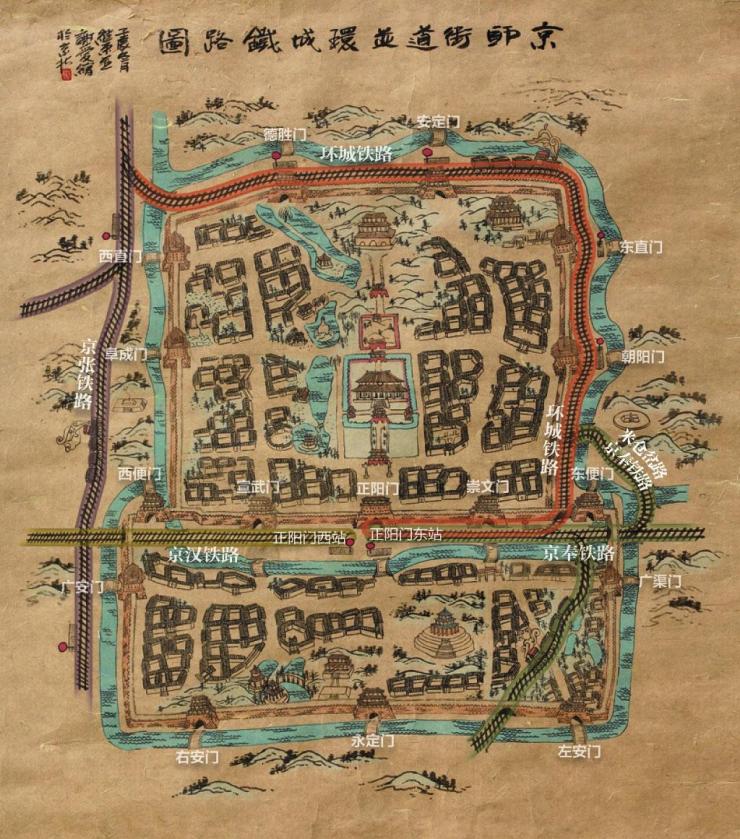 京師街道並環城鐵路圖
壬辰冬月
於京北
德胜门
安定门
环城铁路
西直门
东直门
京张铁路
阜成门
朝阳门
环城铁路
米仓岔路
京奉铁路
西便门
宣武门
正阳门
崇文门
东便门
正阳门西站
正阳门东站
京汉铁路
京奉铁路
广安门
广渠门
右安门
永定门
左安门